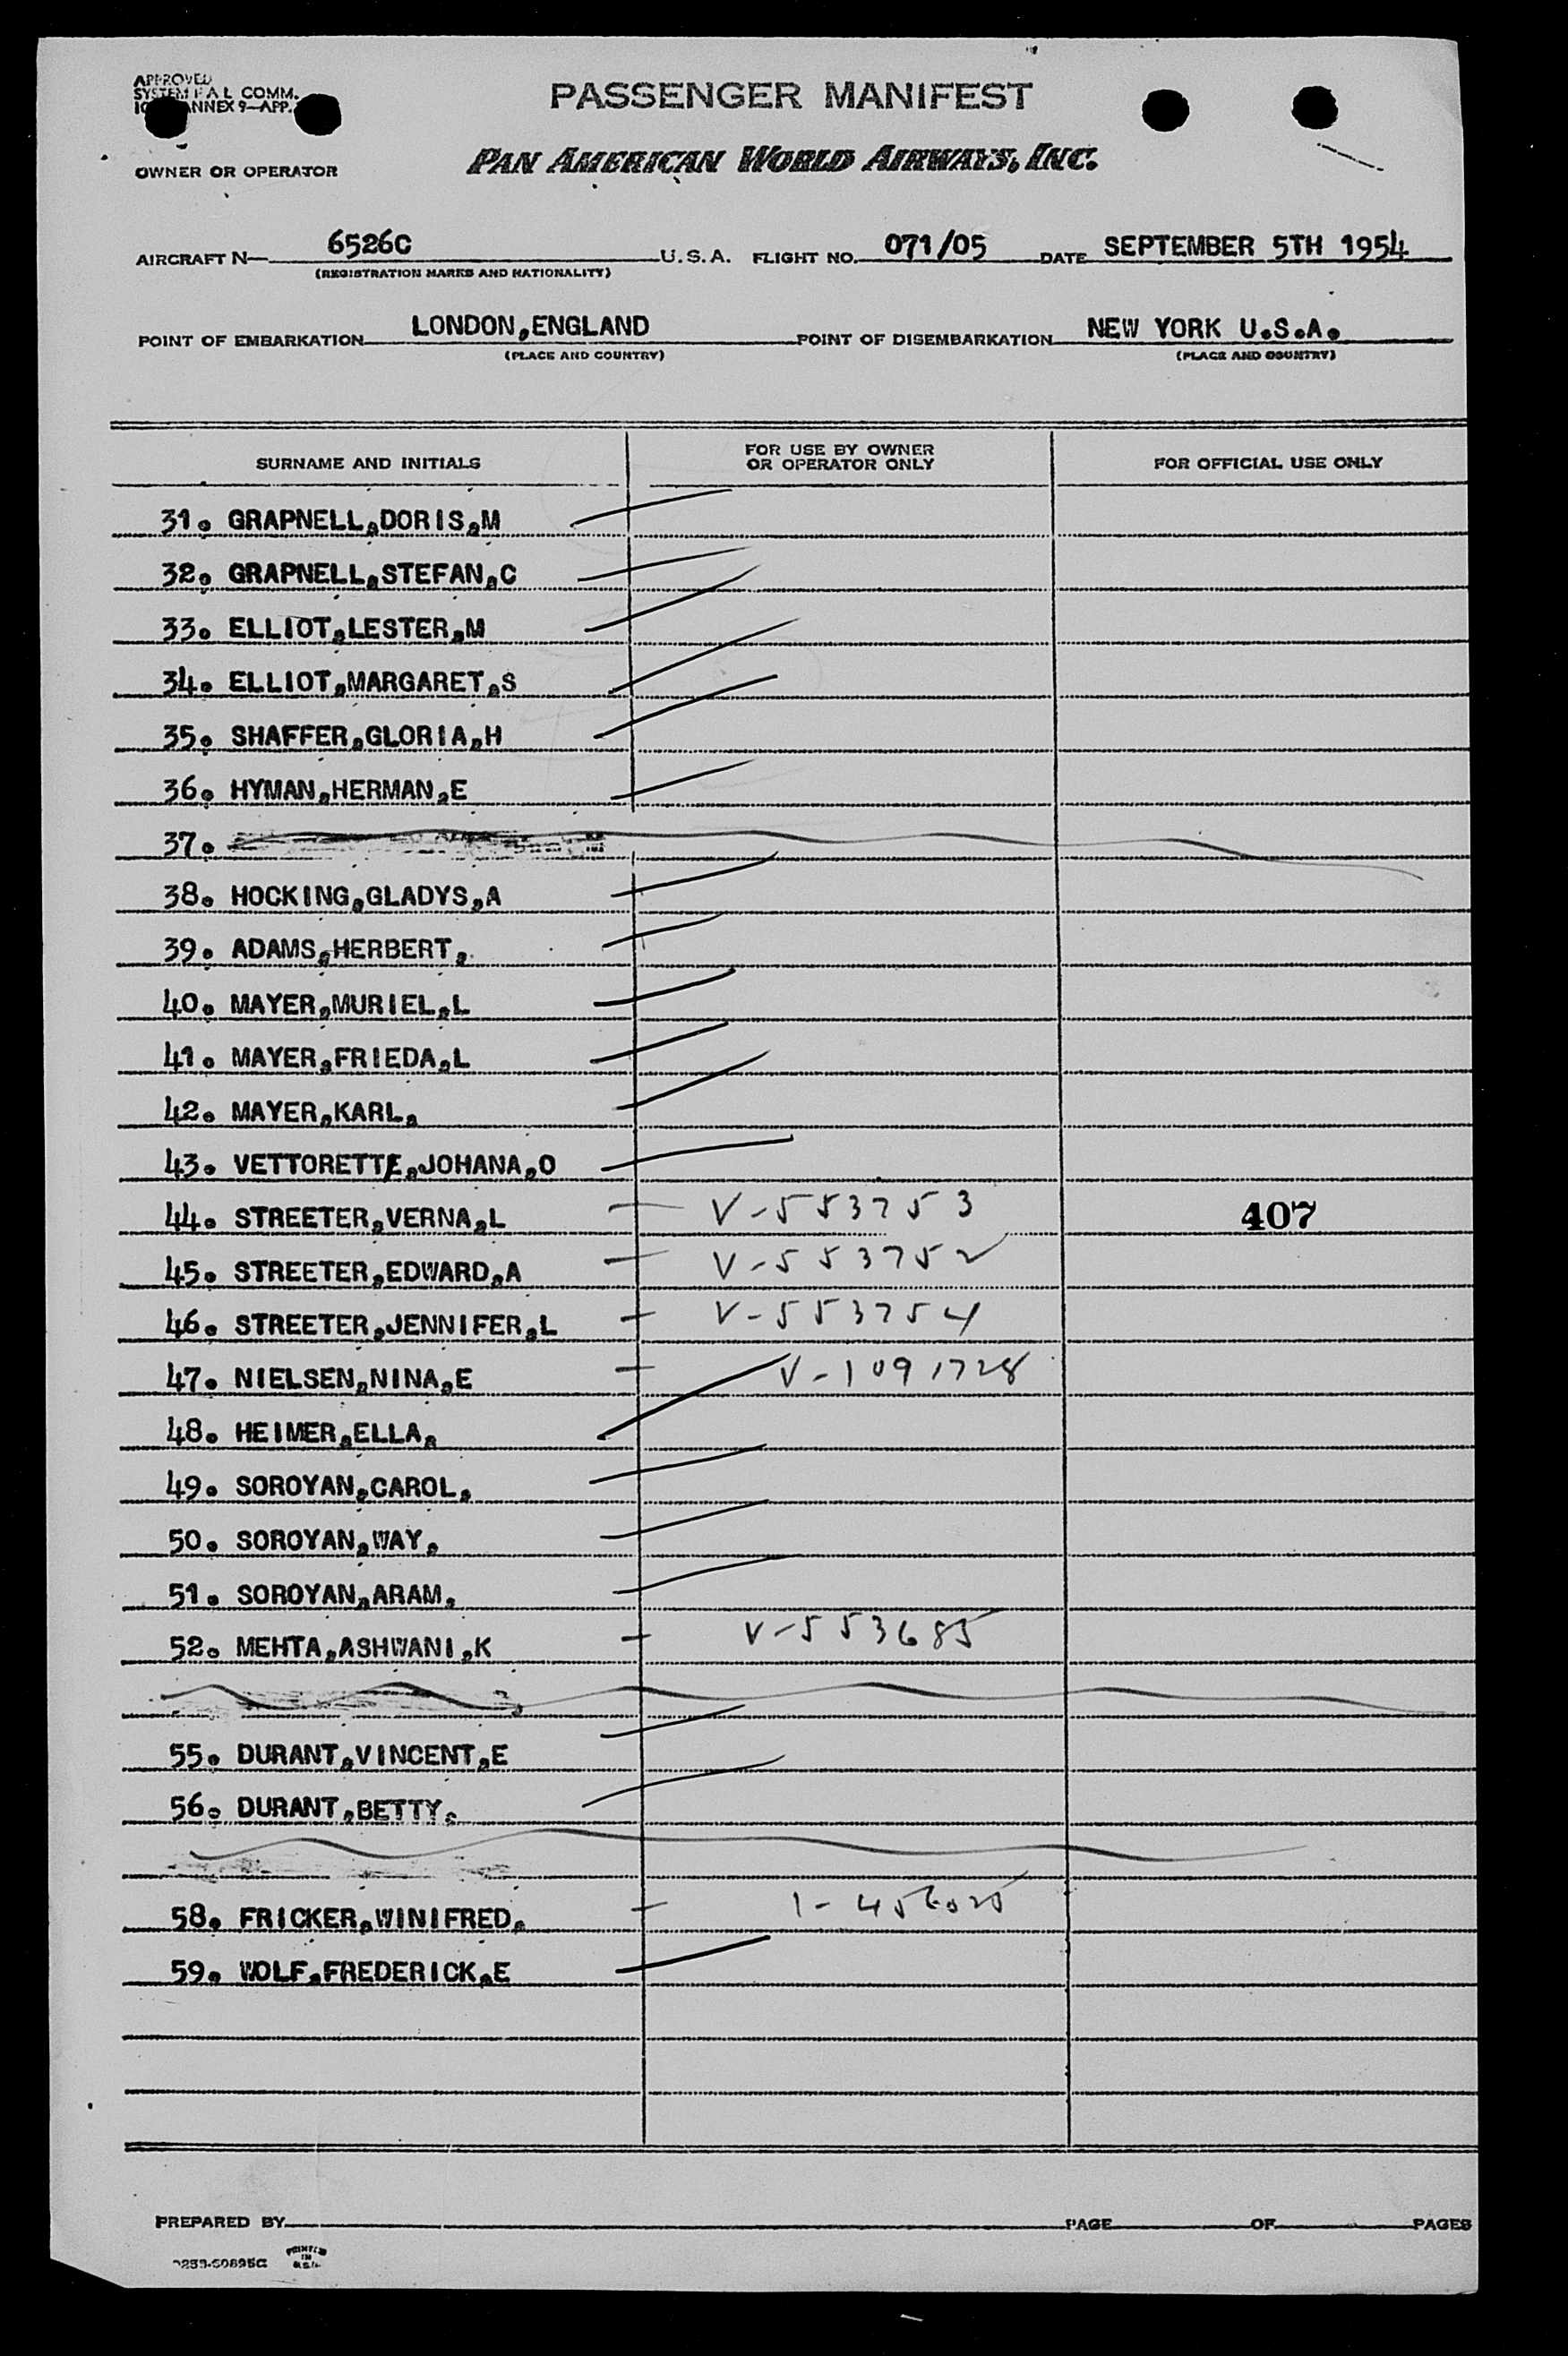 APPROVED
SYSTEM F A L COMM.
ANNEX 9—APP.
PASSENGER MANIFEST
OWNER OR OPERATOR
PAN AMERICAN WORLD AIRWAYS, INC.
AIRCRAFT N— 6526C U.S.A. FLIGHT NO. 071/05 DATE SEPTEMBER 5TH 1954
(REGISTRATION MARKS AND NATIONALITY)
POINT OF EMBARKATION LONDON,ENGLAND POINT OF DISEMBARKATION NEW YORK U.S.A.
(PLACE AND COUNTRY) (PLACE AND COUNTRY)
SURNAME AND INITIALS FOR USE BY OWNER OR OPERATOR ONLY FOR OFFICIAL USE ONLY
31. GRAPNELL,DORIS,M
32. GRAPNELL,STEFAN,C
33. ELLIOT,LESTER,M
34. ELLIOT,MARGARET,S
35. SHAFFER,GLORIA,H
36. HYMAN,HERMAN,E
37.
38. HOCKING,GLADYS,A
39. ADAMS,HERBERT,
40. MAYER,MURIEL,L
41. MAYER,FRIEDA,L
42. MAYER,KARL,
43. VETTORETTE,JOHANA,O
44. STREETER,VERNA,L V-553753 407
45. STREETER,EDWARD,A V-553752
46. STREETER,JENNIFER,L V-553754
47. NIELSEN,NINA,E V-1091728
48. HEIMER,ELLA,
49. SOROYAN,CAROL,
50. SOROYAN,WAY,
51. SOROYAN,ARAM,
52. MEHTA,ASHWANI,K V-553685
55. DURANT,VINCENT,E
56. DURANT,BETTY,
58. FRICKER,WINIFRED,
59. WOLF,FREDERICK,E
PREPARED BY PAGE OF PAGES
PRINTED
IN
U.S.A.